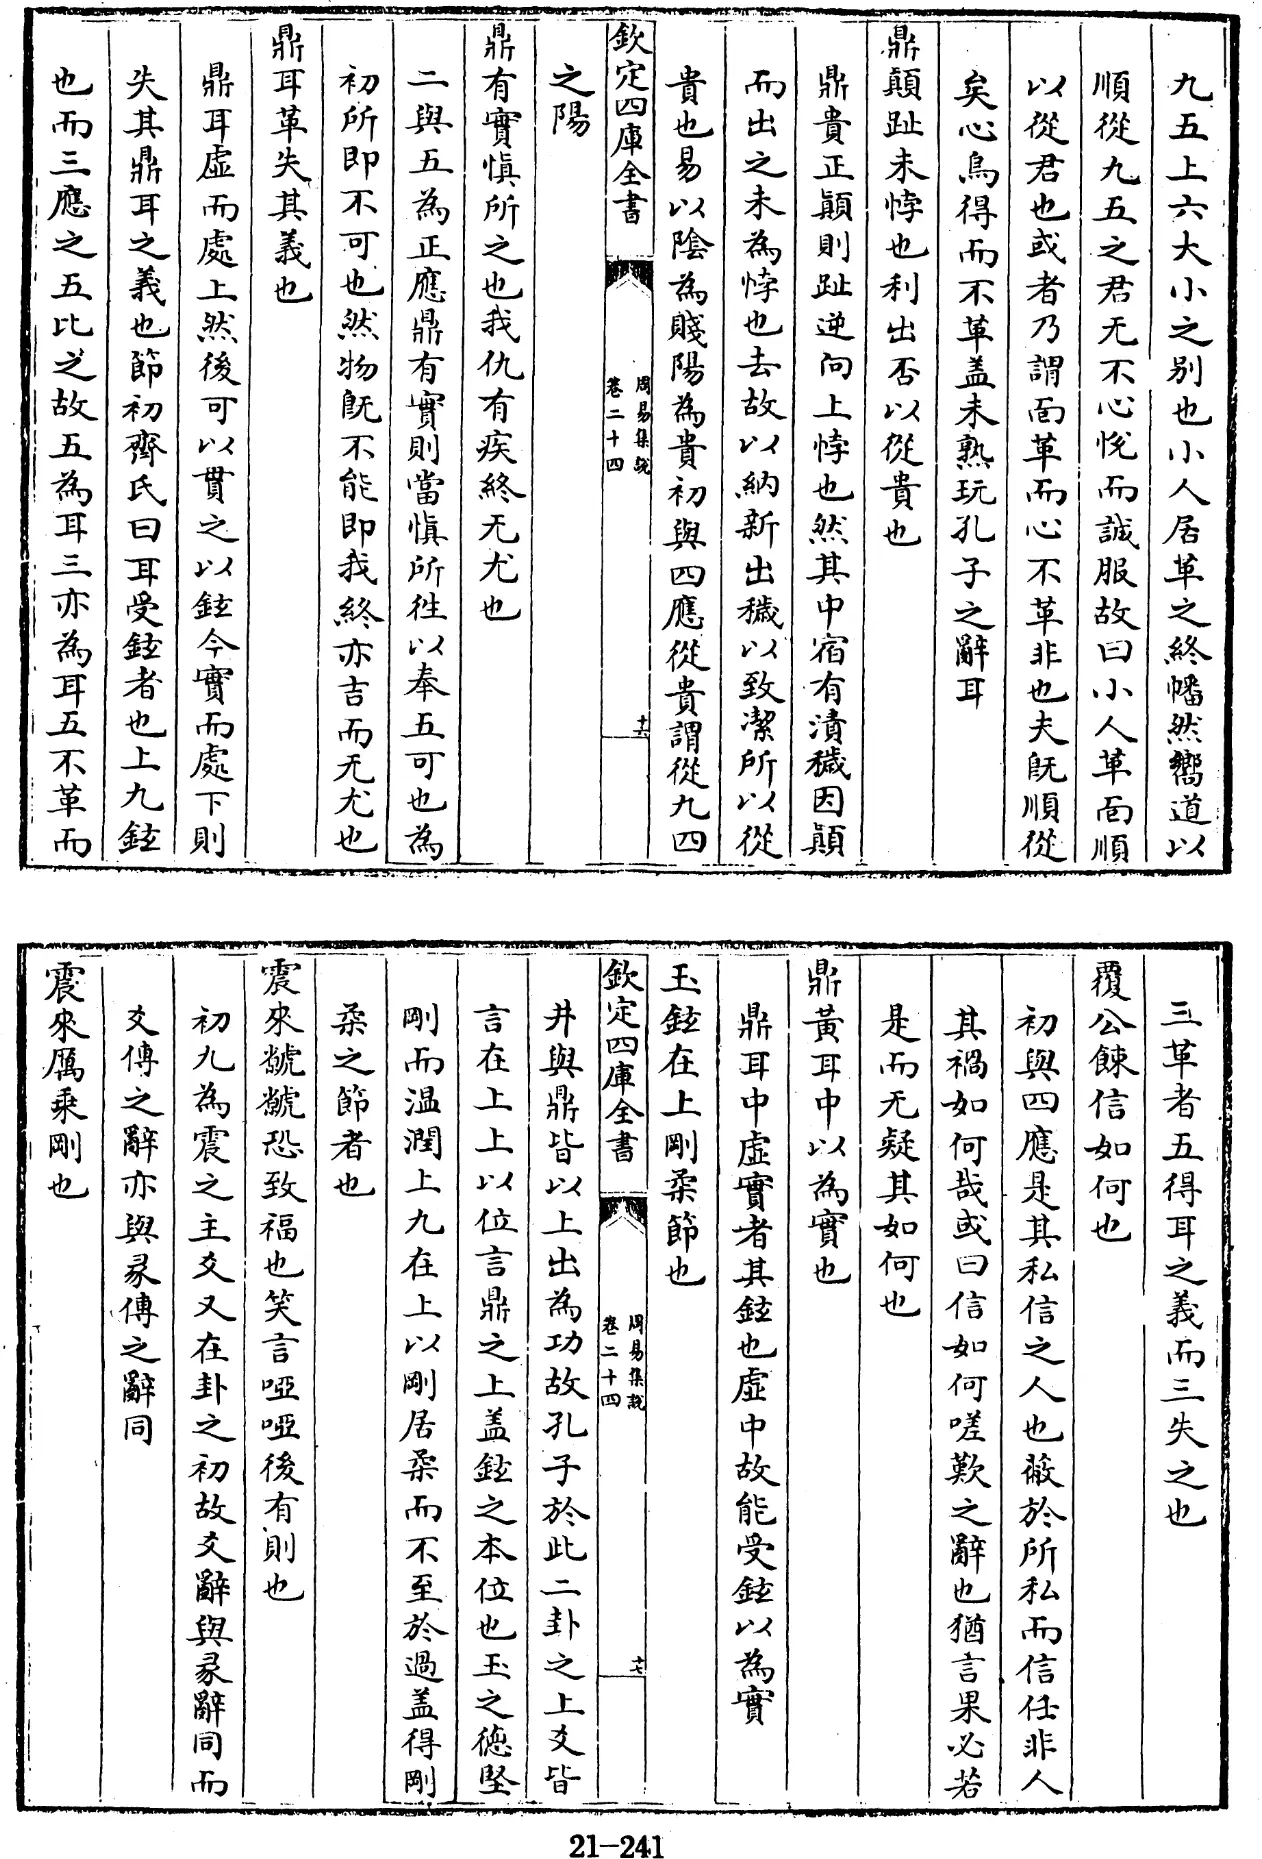 九五上六大小之别也小人居革之終幡然嚮道以
順從九五之君无不心悅而誠服故曰小人革面順
以從君也或者乃謂面革而心不革非也夫旣順從
矣心烏得而不革盖未熟玩孔子之辭耳
鼎顛趾未悖也利出否以從貴也
鼎貴正顛則趾逆向上悖也然其中宿有漬穢因顛
而出之未為悖也去故以納新出穢以致潔所以從
貴也易以陰為賤陽為貴初與四應從貴謂從九四
欽定四庫全書
周易集說
卷二十四
十六
之陽
鼎有實慎所之也我仇有疾終无尤也
二與五為正應鼎有實則當慎所徃以奉五可也為
初所即不可也然物旣不能即我終亦吉而无尤也
鼎耳革失其義也
鼎耳虛而處上然後可以貫之以鉉今實而處下則
失其鼎耳之義也節初齊氏曰耳受鉉者也上九鉉
也而三應之五比之故五為耳三亦為耳五不革而
三革者五得耳之義而三失之也
覆公餗信如何也
初與四應是其私信之人也蔽於所私而信任非人
其禍如何哉或曰信如何嗟歎之辭也猶言果必若
是而无疑其如何也
鼎黃耳中以為實也
鼎耳中虛實者其鉉也虛中故能受鉉以為實
玉鉉在上剛柔節也
欽定四庫全書
周易集說
卷二十四
十七
井與鼎皆以上出為功故孔子於此二卦之上爻皆
言在上上以位言鼎之上盖鉉之本位也玉之德堅
剛而温潤上九在上以剛居柔而不至於過盖得剛
柔之節者也
震來虩虩恐致福也笑言啞啞後有則也
初九為震之主爻又在卦之初故爻辭與彖辭同而
爻傳之辭亦與彖傳之辭同
震來厲乘剛也
21-241